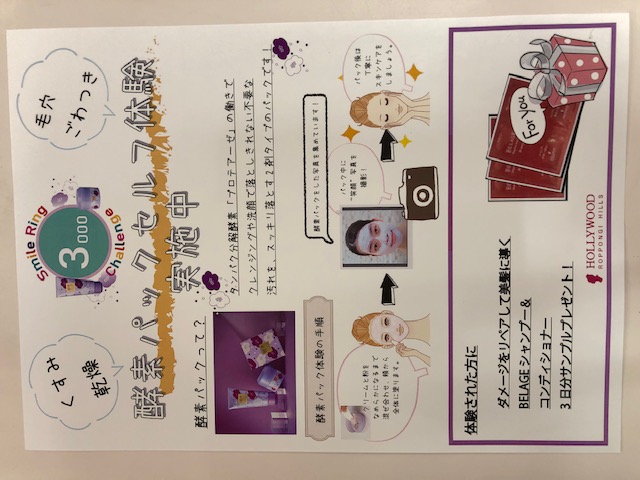 くすみ
乾燥
Smile Ring
3000
Challenge
毛穴
ごわつき
酵素パックセルフ体験
実施中
酵素パックって？
タンパク分解酵素「プロテアーゼ」の働きで
クレンジングや洗顔で落としきれない不要な
汚れを、スッキリ落とす2剤タイプのパックです！
酵素パック体験の手順
酵素パックをした写真を集めています！
クリームと粉を
なめらかになるまで
混ぜ合わせ、頬から
全体に塗ります。
パック中に
“笑顔”写真を
撮影
パック後は
丁寧に
スキンケアを
しましょう。
体験された方に
ダメージをリペアして美髪に導く
BELAGE シャンプー＆
コンディショナー
3日分サンプルプレゼント！
For you
HOLLYWOOD
ROPPONGI HILLS